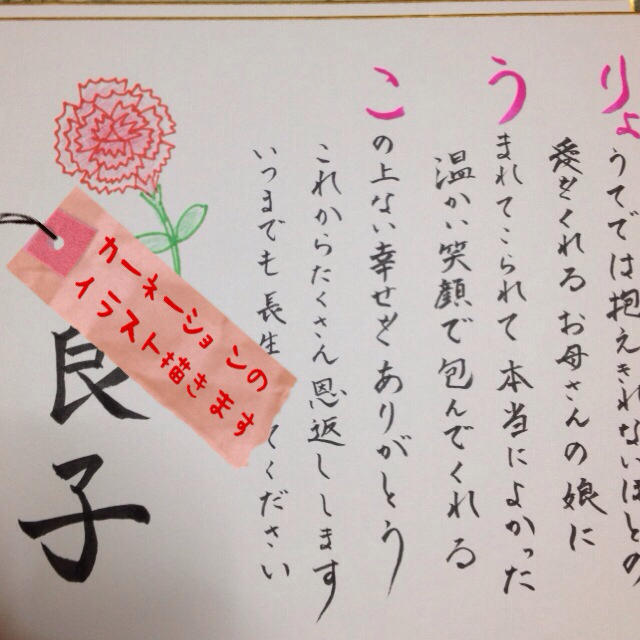 りょうてでは抱えきれないほどの
愛をくれるお母さんの娘に
うまれてこられて本当によかった
温かい笑顔で包んでくれる
この上ない幸せをありがとう
これからたくさん恩返しします
いつまでも長生てください
良子
カーネーションの
イラスト描きます